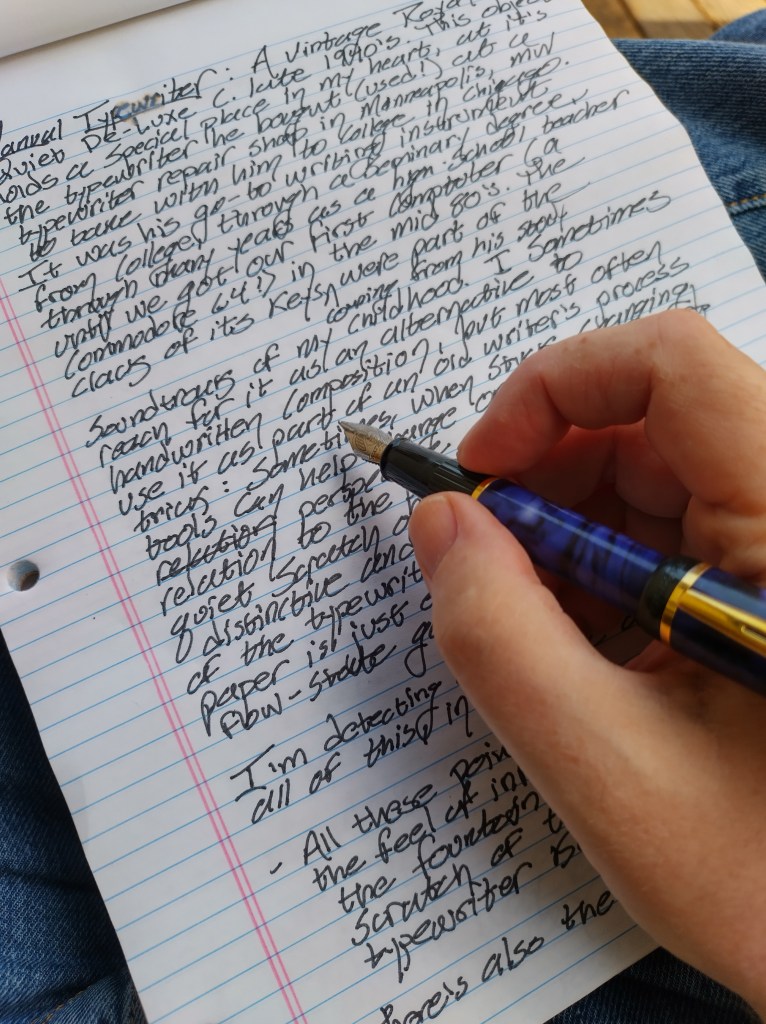 Manual Typewriter: A vintage Royal
Quiet De-Luxe c. late 1940's. This object
holds a special place in my heart, as it's
the typewriter he bought (used!) at a
typewriter repair shop in Minneapolis, MN
to take with him to college in Chicago.
It was his go-to writing instrument
from college, through a seminary degree,
through many years as a high school teacher
until we got our first computer (a
Commodore 64!) in the mid 80's. The
clacs of its keys, coming from his study were part of the
soundtracs of my childhood. I sometimes
reach for it as an alternative to
handwritten composition, but most often
use it as part of an old writer's process
trick: Sometimes, when stuck, changing
tools can help
relation
relation to the
quiet scratch of
distinctive and
of the typewrit
paper is just
flow-state
I'm detecting
all of this, in
- All these poin
the feel of in
the fountain
scratch of t
typewriter is
there's also the